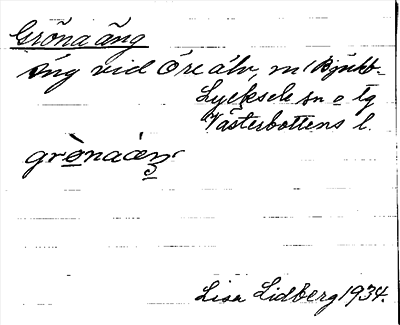 Gröna äng
äng vid Öre älv,
Lycksele sn o tg
Västerbottens l.
Lisa Lidberg 1934.